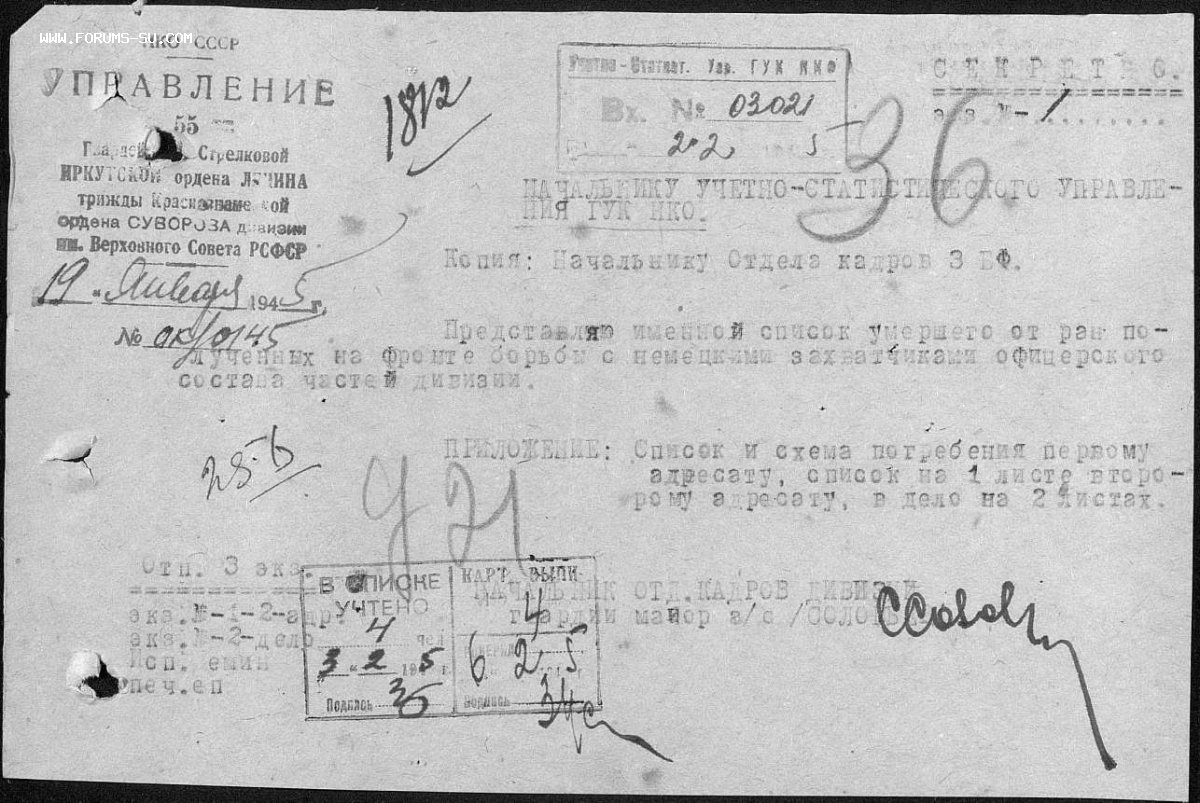 WWW.FORUMS-SU.COM
НКО СССР
УПРАВЛЕНИЕ
55
Стрелковой
ИРКУТСКОЙ ордена ЛЕНИНА
трижды Краснознаменной
ордена СУВОРОВА дивизии
им. Верховного Совета РСФСР
19 "Января 1945 г.
№ ок/0145
1812
Учетно-Статист. Упр. ГУК НКО
Вх. № 03021
2 2 5
СЕКРЕТНО.
экз.№-1
36
НАЧАЛЬНИКУ УЧЕТНО-СТАТИСТИЧЕСКОГО УПРАВЛЕ-
НИЯ ГУК НКО.
Копия: Начальнику Отдела кадров 3 БФ.
Представляю именной список умершего от ран по-
лученных на фронте борьбы с немецкими захватчиками офицерского
состава частей дивизии.
ПРИЛОЖЕНИЕ: Список и схема погребения первому
адресату, список на 1 листе второ-
рому адресату, в дело на 2 листах.
25-б
921
НАЧАЛЬНИК ОТД.КАДРОВ ДИВИЗИИ
гвардии майор а/с /СОЛОВЬ
Отп. 3 экз.
экз.№-1-2-адр.
экз.№-2-дело
Исп. емин
печ.еп
В СПИСКЕ
УЧТЕНО
4 чел
3 " 2 1945 г.
Подпись
КАРТ. ВЫПИ
4
6 2 5
Подпись